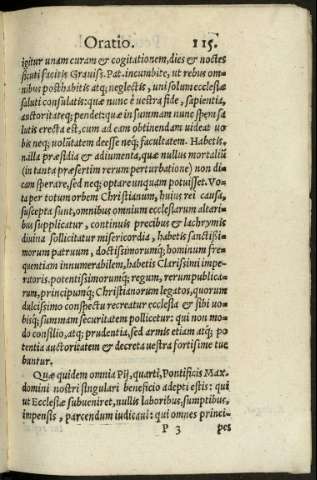 Oratio. 115.
igitur unam curam & cogitationem, dies & noctes
sicuti facitis Grauiss. Pat. incumbite, ut rebus om=
nibus posthabitis atq; neglectis, uni solum ecclesiæ
saluti consulatis: quæ nunc è uestra fide, sapientia,
auctoritateq; pendet: quæ in summam nunc spem sa
lutis erecta est, cum ad eam obtinendam uideat uo
bis neq; uolūtatem deesse neq; facultatem. Habetis
nulla præsidia & adiumenta, quæ nullus mortaliū
(in tanta præsertim rerum perturbatione) non di=
cam sperare, sed neq; optare unquam potuisset. Vo=
ta per totum orbem Christianum, huius rei causa,
suscepta sunt, omnibus omnium ecclesiarum altari=
bus supplicatur, continuis precibus & lachrymis
diuina sollicitatur misericordia, habetis sanctissi=
morum patruum, doctissimorumq; hominum fre=
quentiam innumerabilem, habetis Clarissimi impe=
ratoris, potentissimorumq; regum, rerumpublica=
rum, principumq; Christianorum legatos, quorum
dulcissimo conspectu recreatur ecclesia & sibi uo=
bisq; summam securitatem pollicetur: qui non mo=
do consilio, atq; prudentia, sed armis etiam atq; po
tentia auctoritatem & decreta uestra fortissime tue
buntur.
Quæ quidem omnia Pij, quarti, Pontificis Max.
domini nostri singulari beneficio adepti estis: qui
ut Ecclesiæ subueniret, nullis laboribus, sumptibus,
impensis, parcendum iudicaui: qui omnes princi=
P 3 pes